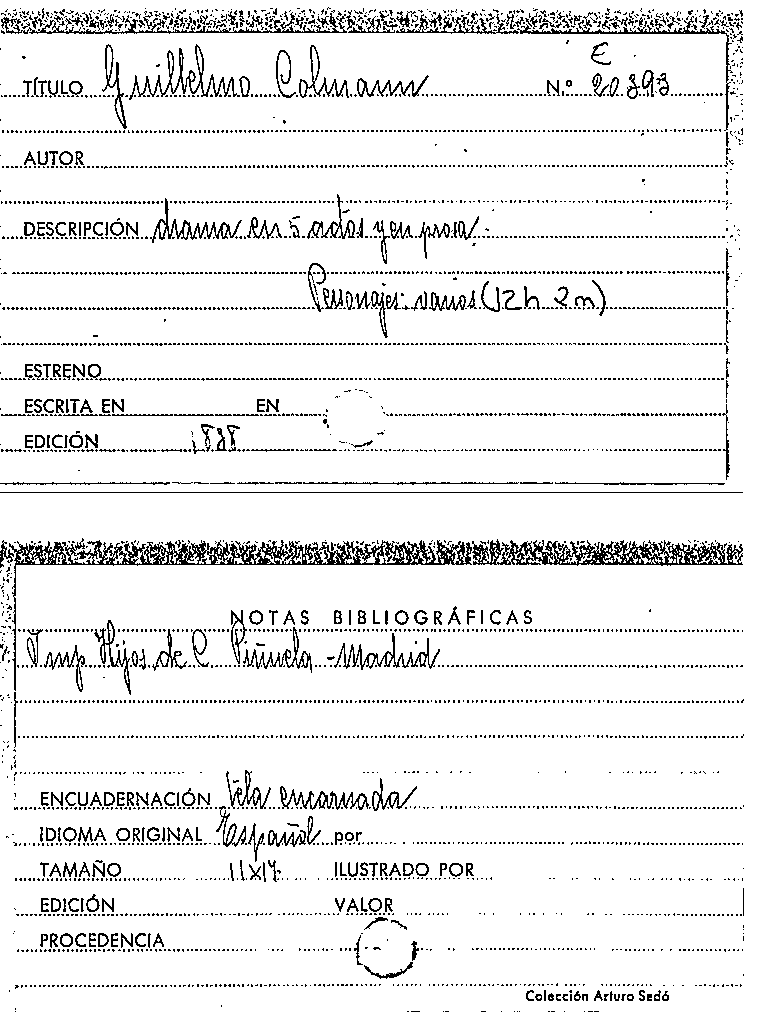 E
TÍTULO Guillelmo Colmann N.º 20393
AUTOR
DESCRIPCIÓN drama en 5 actos y en prosa.
Personajes: varios (12 h 2 m)
ESTRENO
ESCRITA EN EN
EDICIÓN
NOTAS BIBLIOGRÁFICAS
Imp Hijos de C. Piñuela - Madrid
ENCUADERNACIÓN tela encarnada
IDIOMA ORIGINAL Español por
TAMAÑO ILUSTRADO POR
EDICIÓN VALOR
PROCEDENCIA
Colección Arturo Sedó